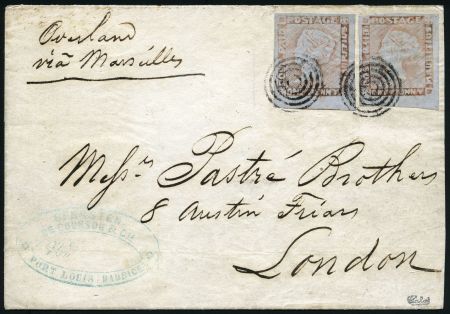 Overland
via Marseilles
POSTAGE
POSTAGE
Messrs Pastré Brothers
8 Austin Friars
London
PORT LOUIS MAURICE